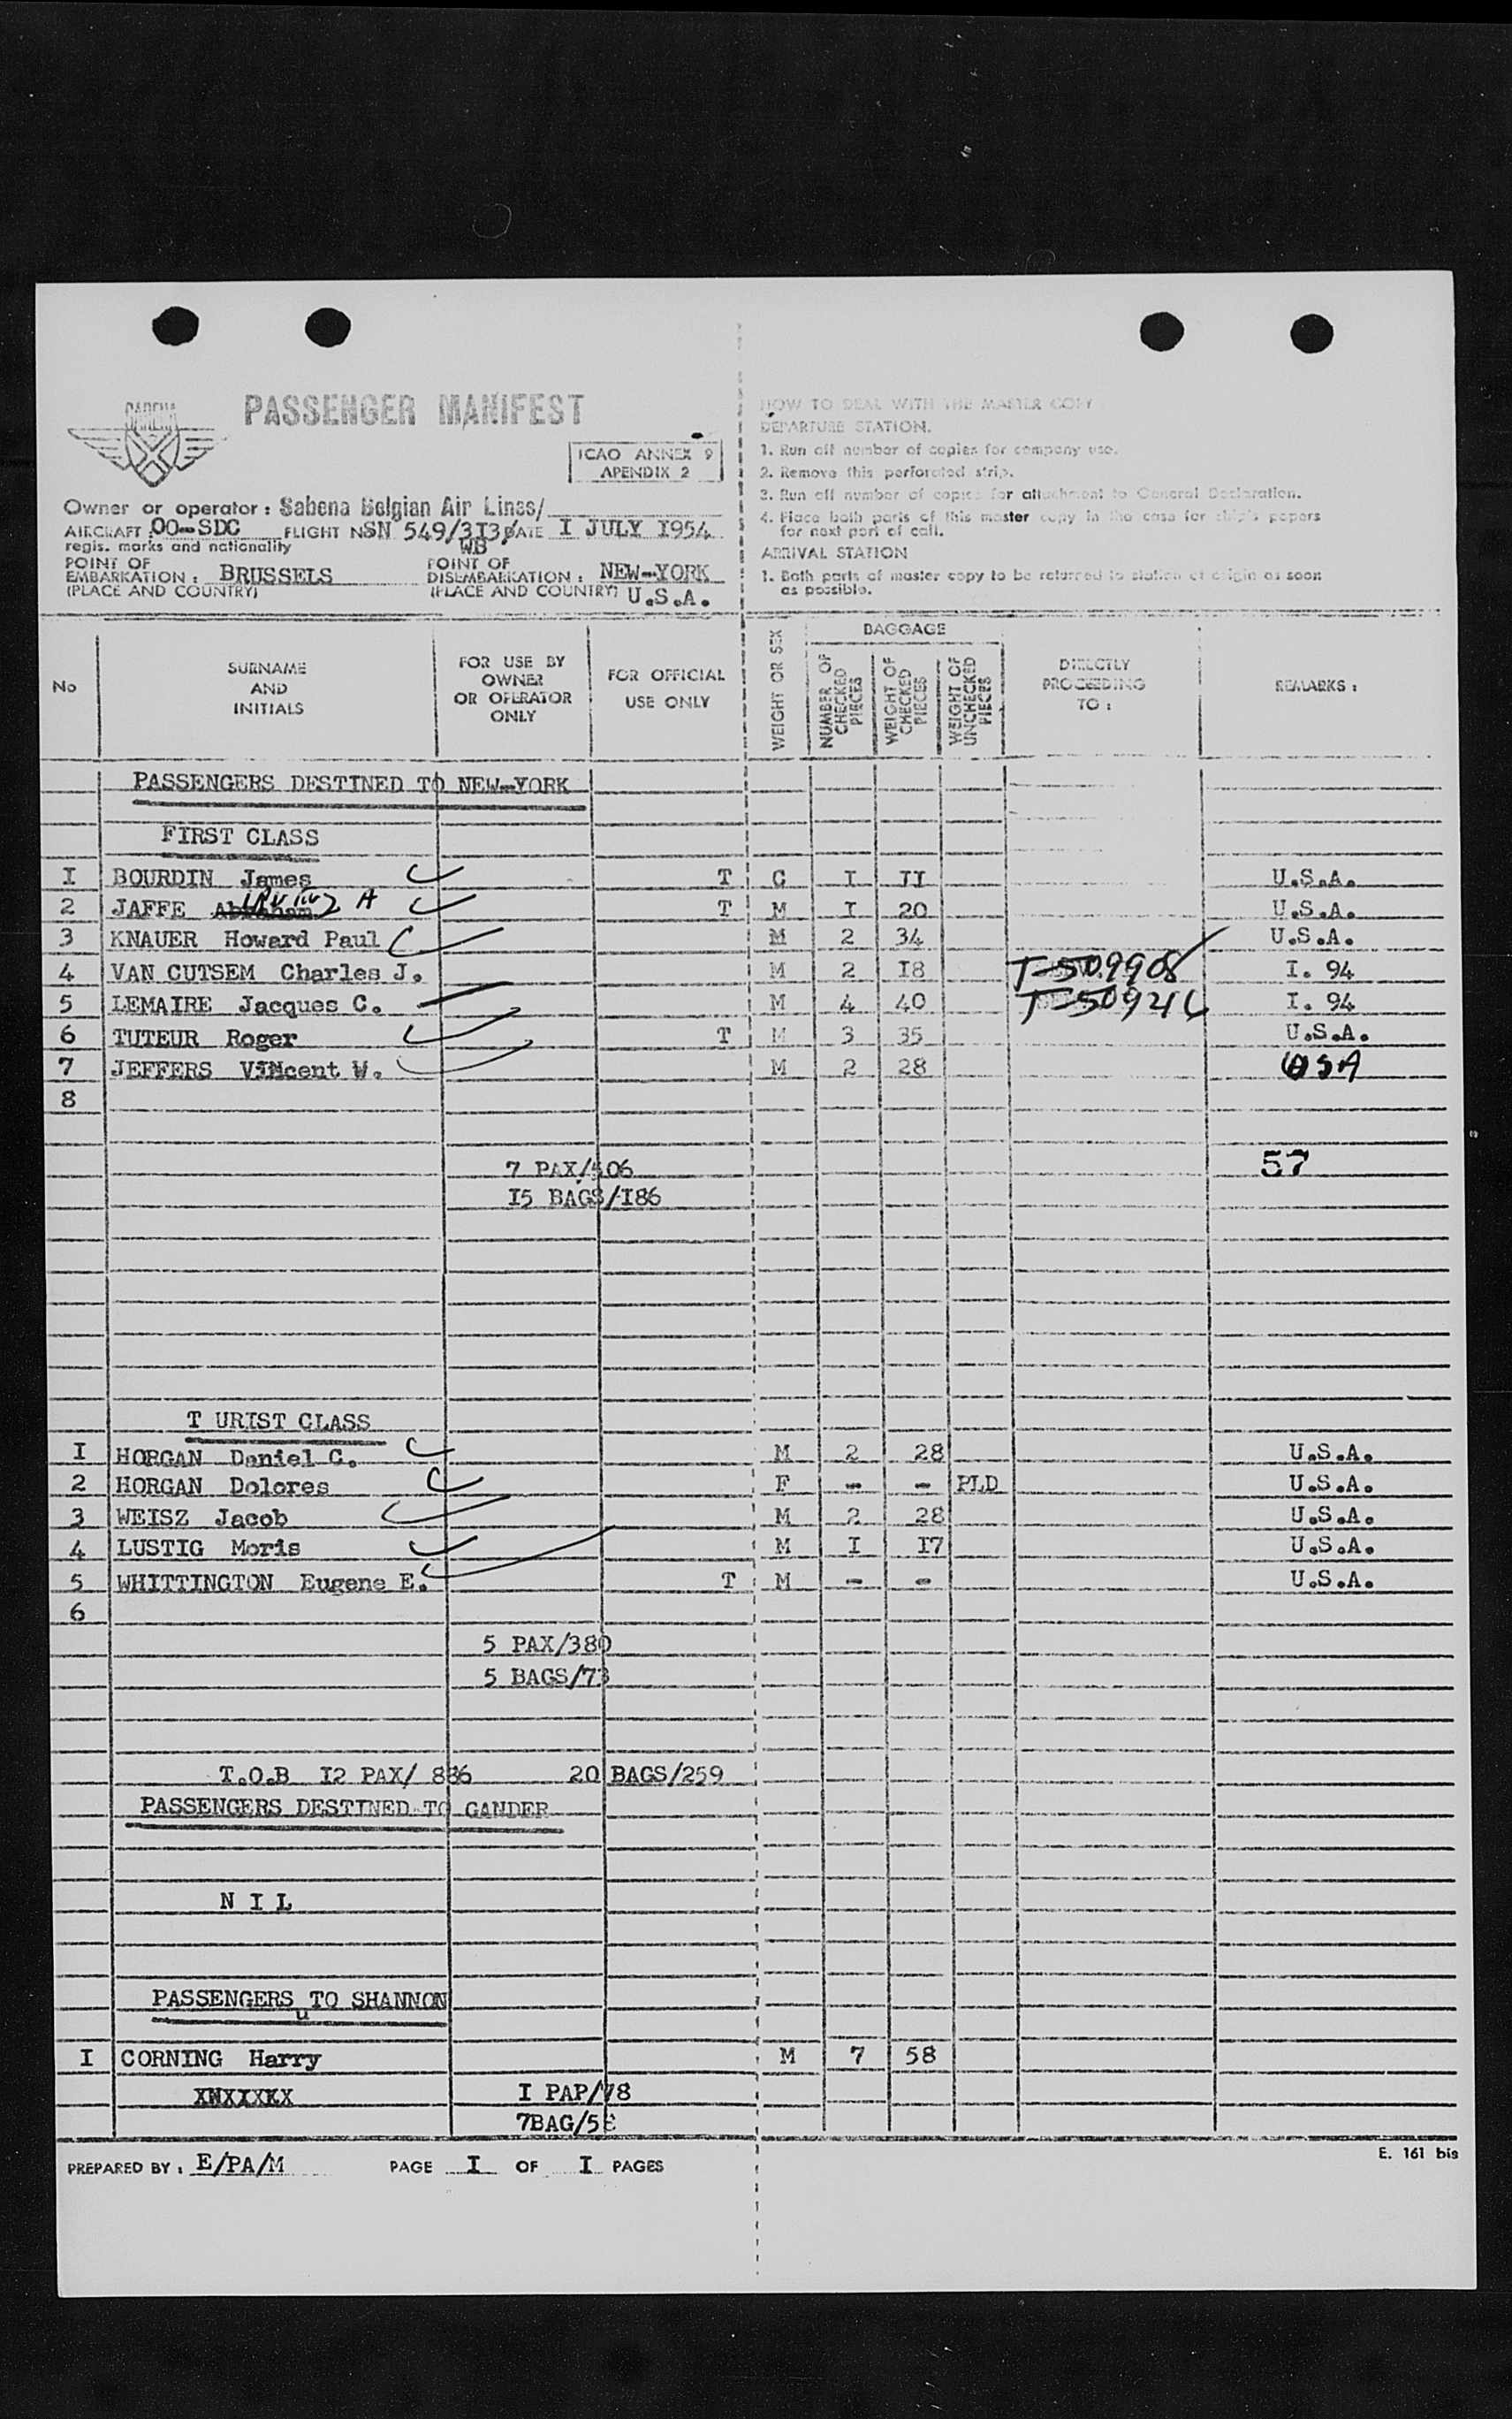 SABENA
PASSENGER MANIFEST
ICAO ANNEX 9
APENDIX 2
Owner or operator : Sabena Belgian Air Lines/
AIRCRAFT : OO-SDC FLIGHT N SN 549/3I3 DATE I JULY I954
regis. marks and nationality WB
POINT OF EMBARKATION : BRUSSELS POINT OF DISEMBARKATION : NEW-YORK
(PLACE AND COUNTRY) (PLACE AND COUNTRY) U.S.A.
HOW TO DEAL WITH THE MASTER COPY
DEPARTURE STATION.
1. Run off number of copies for company use.
2. Remove this perforated strip.
3. Run off number of copies for attachment to General Declaration.
4. Place both parts of this master copy in the case for ship's papers
for next port of call.
ARRIVAL STATION
1. Both parts of master copy to be returned to station of origin as soon
as possible.
No
SURNAME AND INITIALS
FOR USE BY OWNER OR OPERATOR ONLY
FOR OFFICIAL USE ONLY
WEIGHT OR SEX
BAGGAGE
NUMBER OF CHECKED PIECES
WEIGHT OF CHECKED PIECES
WEIGHT OF UNCHECKED PIECES
DIRECTLY PROCEEDING TO :
REMARKS :
PASSENGERS DESTINED TO NEW-YORK
FIRST CLASS
I BOURDIN James T C I II U.S.A.
2 JAFFE Abraham Irving A T M I 20 U.S.A.
3 KNAUER Howard Paul M 2 34 U.S.A.
4 VAN CUTSEM Charles J. M 2 I8 T-509908 I. 94
5 LEMAIRE Jacques C. M 4 40 I. 94
6 TUTEUR Roger T M 3 35 U.S.A.
7 JEFFERS Vincent W. M 2 28 USA
8
7 PAX/506 57
I5 BAGS/I86
T URIST CLASS
I HORGAN Daniel C. M 2 28 U.S.A.
2 HORGAN Dolores F - - PLD U.S.A.
3 WEISZ Jacob M 2 28 U.S.A.
4 LUSTIG Moris M I I7 U.S.A.
5 WHITTINGTON Eugene E. T M - - U.S.A.
6
5 PAX/380
5 BAGS/73
T.O.B I2 PAX/ 886 20 BAGS/259
PASSENGERS DESTINED TO GANDER
N I L
PASSENGERS TO SHANNON
u
I CORNING Harry M 7 58
I PAP/78
7BAG/58
PREPARED BY : E/PA/M PAGE I OF I PAGES
E. 161 bis